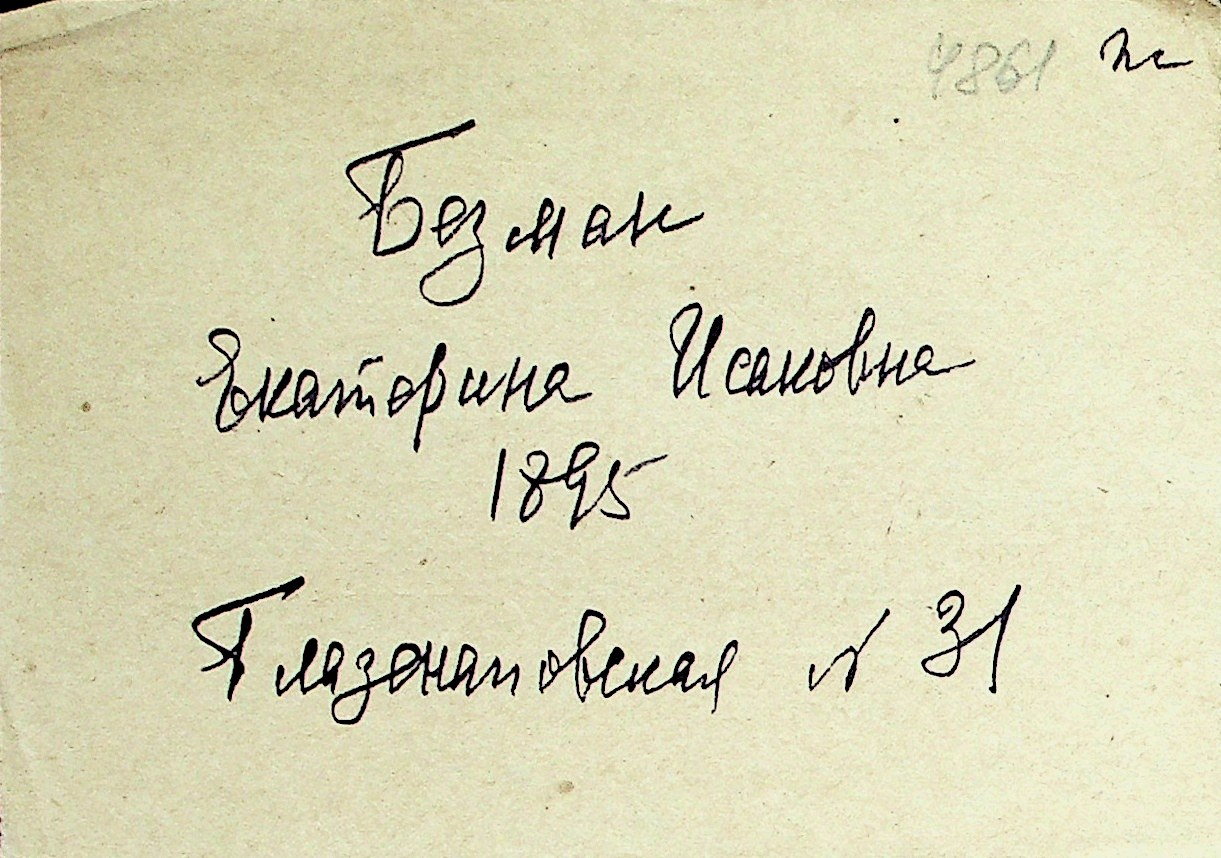 4861
Безман
Екаторина Исаковна
1895
Глазенаповская № 31